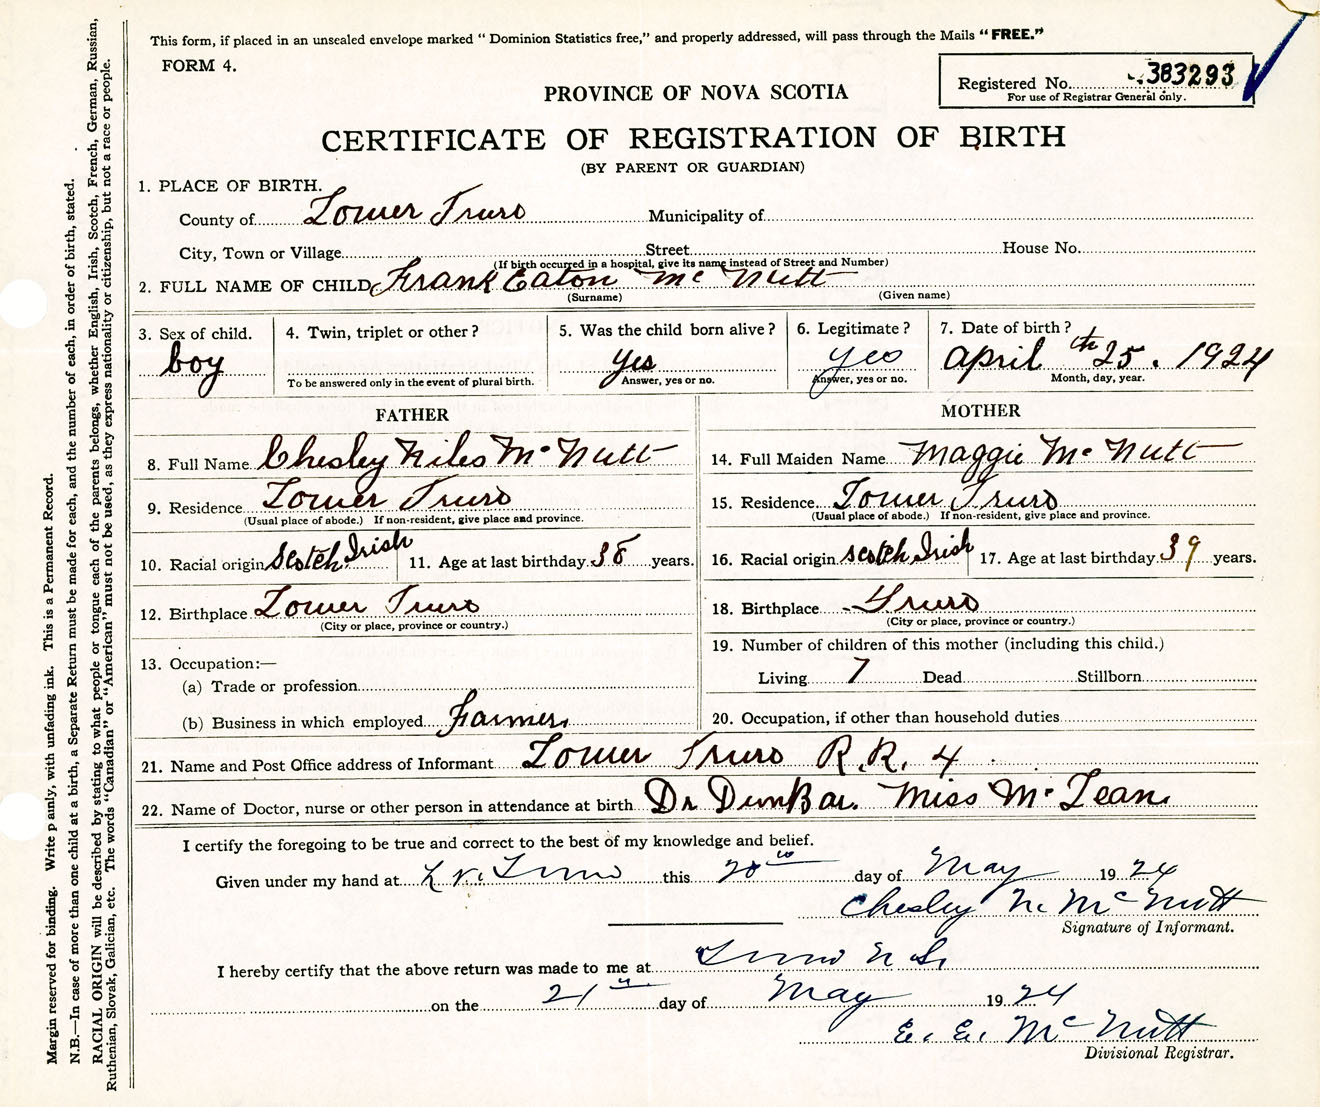 This form, if placed in an unsealed envelope marked " Dominion Statistics free," and properly addressed, will pass through the Mails "FREE."
FORM 4.
Registered No. 383293
For use of Registrar General only.
PROVINCE OF NOVA SCOTIA
CERTIFICATE OF REGISTRATION OF BIRTH
(BY PARENT OR GUARDIAN)
1. PLACE OF BIRTH.
County of Lower Truro Municipality of
City, Town or Village Street House No.
(If birth occurred in a hospital, give its name instead of Street and Number)
2. FULL NAME OF CHILD Frank Eaton Mc Nutt
(Surname) (Given name)
3. Sex of child. boy
4. Twin, triplet or other?
To be answered only in the event of plural birth.
5. Was the child born alive? yes
Answer, yes or no.
6. Legitimate? yes
Answer, yes or no.
7. Date of birth? April 25th. 1924
Month, day, year.
FATHER
8. Full Name Chesley Niles Mc Nutt
9. Residence Lower Truro
(Usual place of abode.) If non-resident, give place and province.
10. Racial origin Scotch Irish 11. Age at last birthday 38 years.
12. Birthplace Lower Truro
(City or place, province or country.)
13. Occupation:—
(a) Trade or profession
(b) Business in which employed Farmer
MOTHER
14. Full Maiden Name Maggie Mc Nutt
15. Residence Lower Truro
(Usual place of abode.) If non-resident, give place and province.
16. Racial origin Scotch Irish 17. Age at last birthday 39 years.
18. Birthplace Truro
(City or place, province or country.)
19. Number of children of this mother (including this child.)
Living 7 Dead Stillborn
20. Occupation, if other than household duties
21. Name and Post Office address of Informant Lower Truro R.R. 4
22. Name of Doctor, nurse or other person in attendance at birth Dr DunBar. Miss Mc Lean
I certify the foregoing to be true and correct to the best of my knowledge and belief.
Given under my hand at Truro this 20th day of May 1924
Chesley N. McNutt
Signature of Informant.
I hereby certify that the above return was made to me at Truro N S.
on the 21st day of May 1924
E. E. McNutt
Divisional Registrar.
Margin reserved for binding. Write plainly, with unfading ink. This is a Permanent Record.
N.B.—In case of more than one child at a birth, a Separate Return must be made for each, and the number of each, in order of birth, stated.
RACIAL ORIGIN will be described by stating to what people or tongue each of the parents belongs, whether English, Irish, Scotch, French, German, Russian,
Ruthenian, Slovak, Galician, etc. The words "Canadian" or "American" must not be used, as they express nationality or citizenship, but not a race or people.